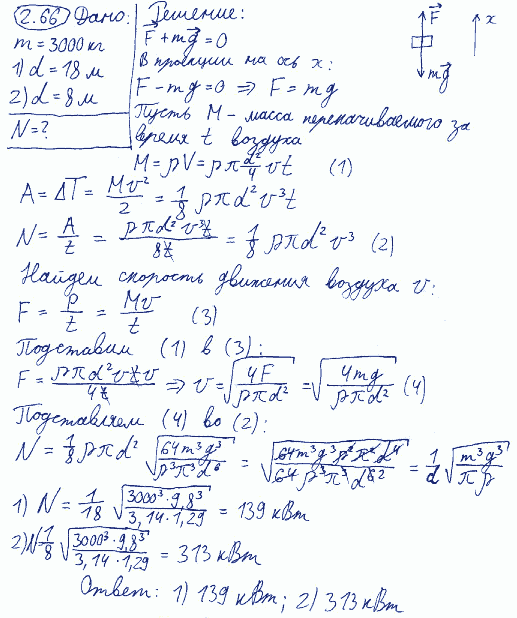 2.66 Дано:
m = 3000 кг
1) d = 18 м
2) d = 8 м
N = ?
Решение:
F⃗ + mg⃗ = 0
В проекции на ось x:
F - mg = 0 ⇒ F = mg
Пусть M - масса перекачиваемого за
время t воздуха
F⃗
x
mg⃗
M = ρV = ρπ d²/4 vt (1)
A = ΔT = Mv²/2 = 1/8 ρπd²v³t
N = A/t = ρπd²v³t/8t = 1/8 ρπd²v³ (2)
Найдем скорость движения воздуха v:
F = p/t = Mv/t (3)
Подставим (1) в (3):
F = ρπd²vtv/4t ⇒ v = √(4F/ρπd²) = √(4mg/ρπd²) (4)
Подставляем (4) во (2):
N = 1/8 ρπd² √(64m³g³/ρ³π³d⁶) = √(64m³g³ρ²π²d⁴/64ρ³π³d⁶²) = 1/d √(m³g³/πρ)
1) N = 1/18 √(3000³·9,8³/3,14·1,29) = 139 кВт
2) N 1/8 √(3000³·9,8³/3,14·1,29) = 313 кВт
Ответ: 1) 139 кВт; 2) 313 кВт